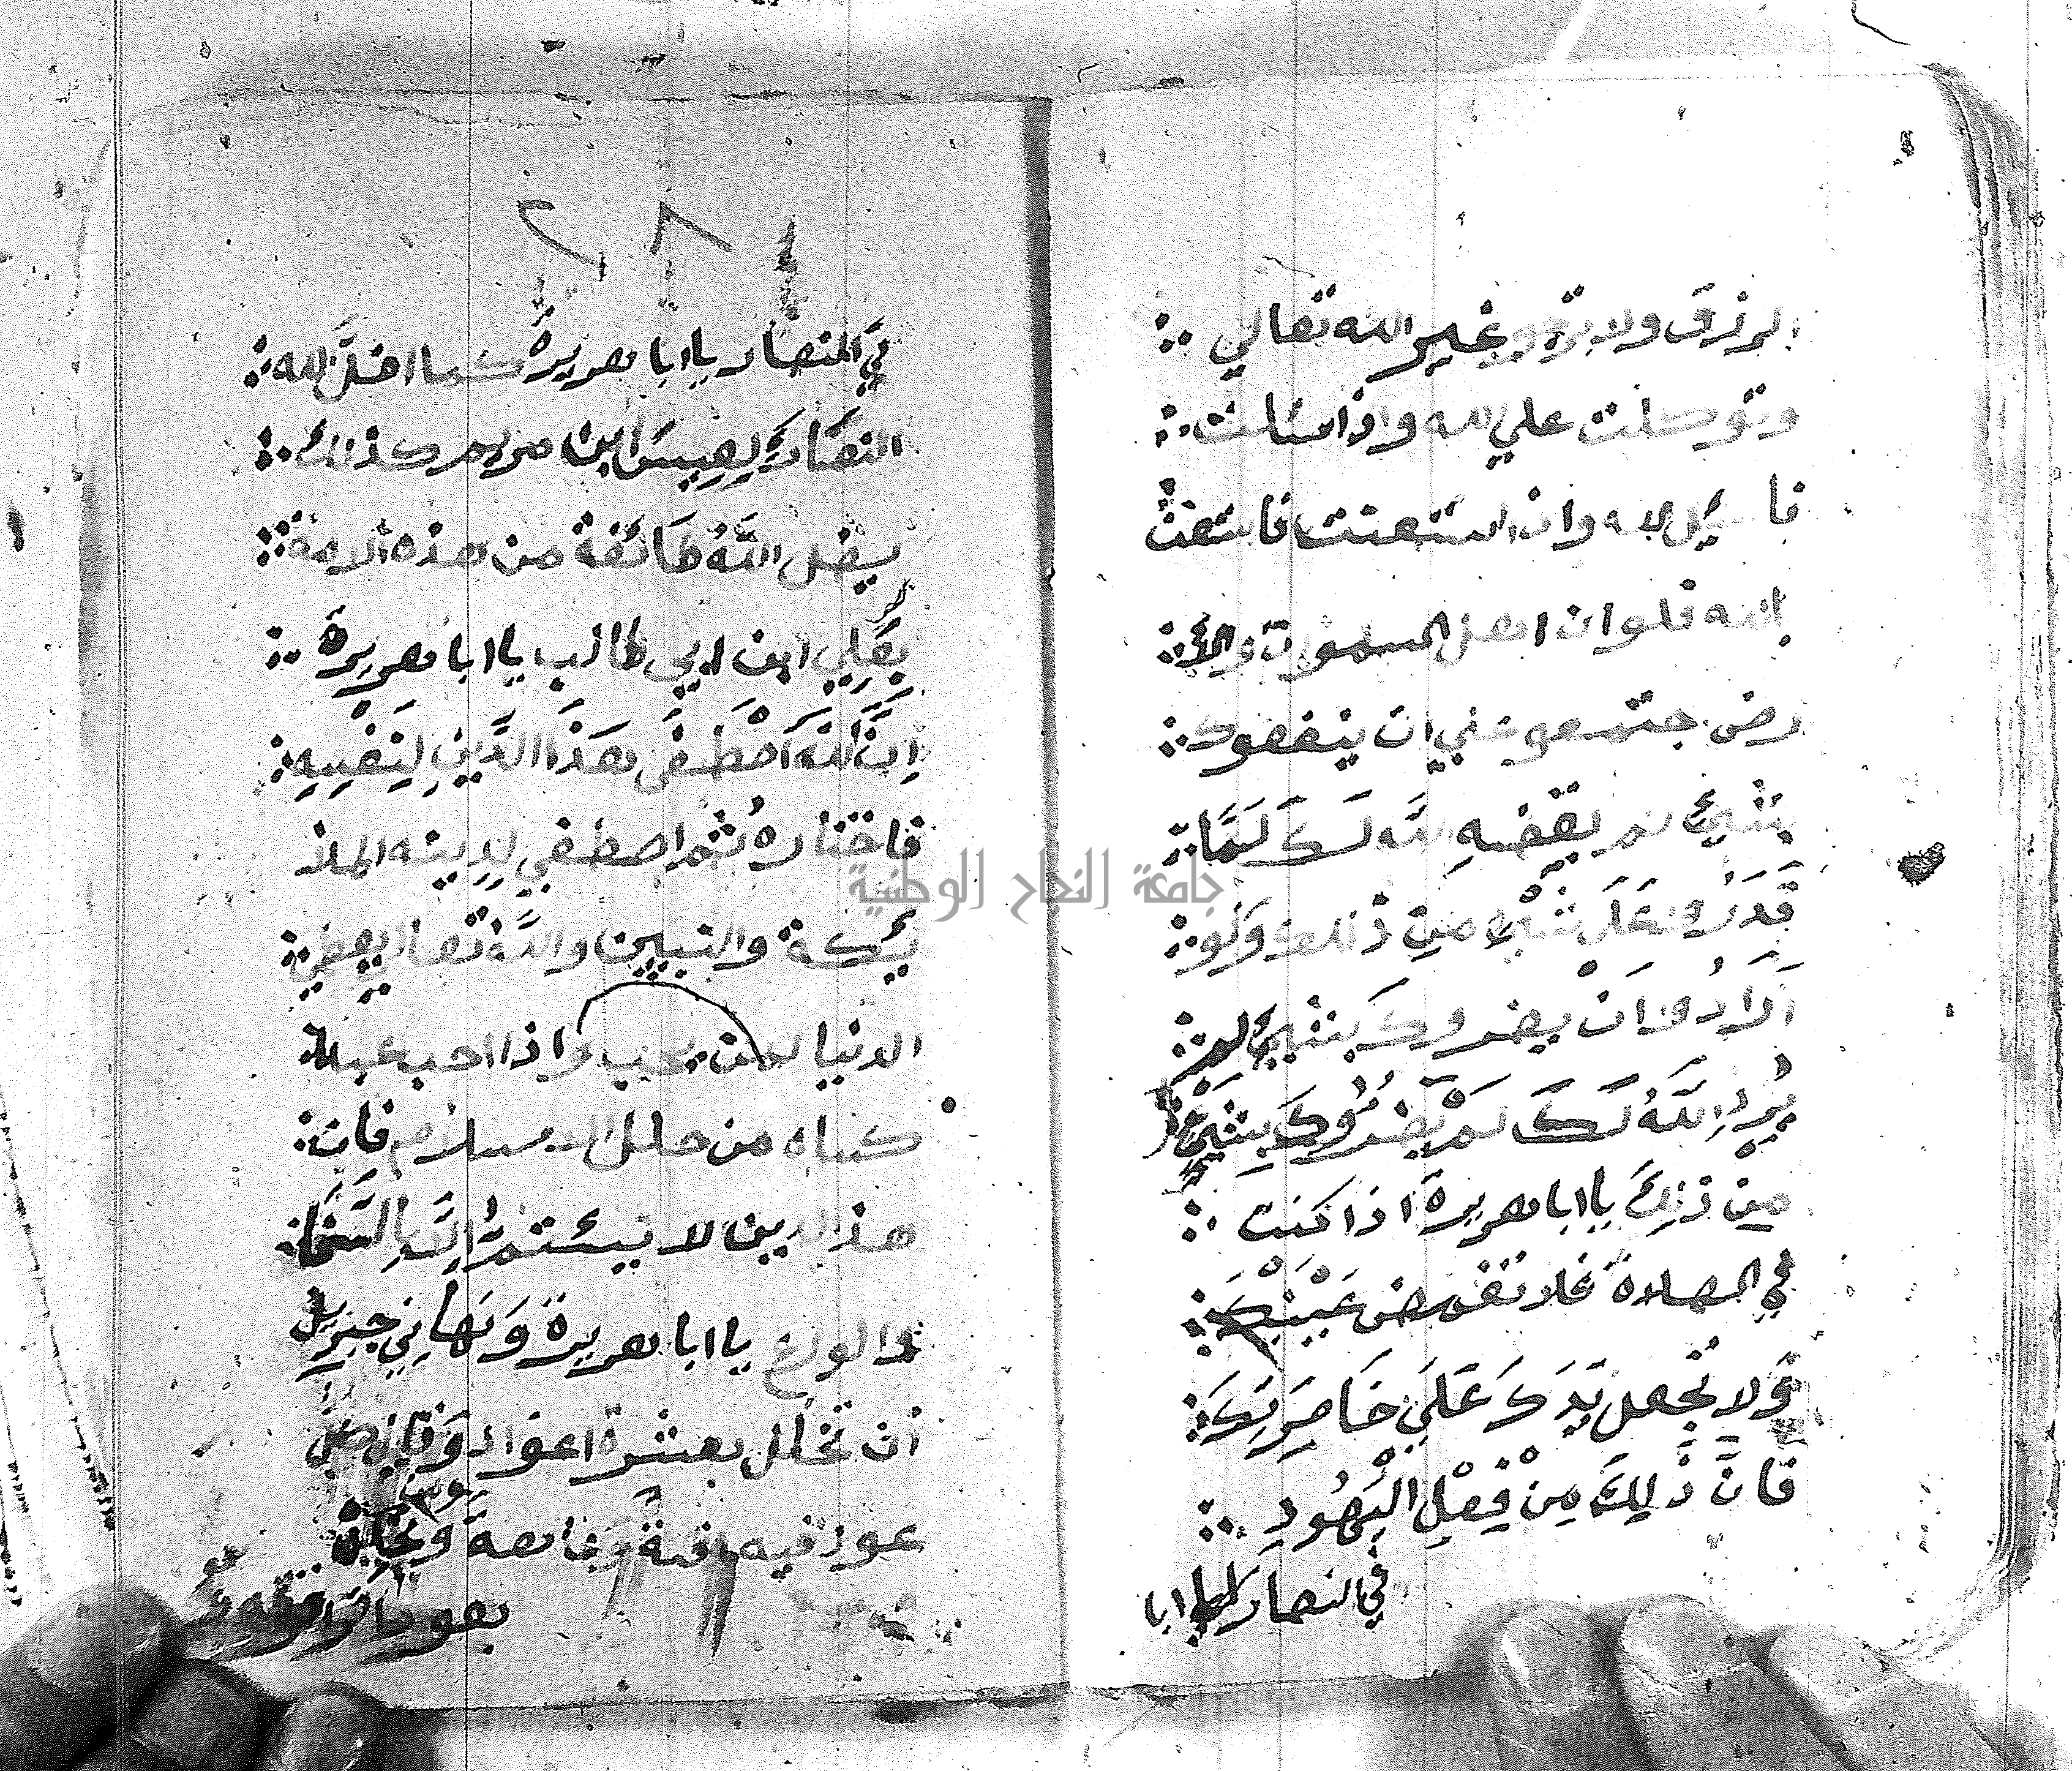 الرزق ولا ترجو غير الله تعالي
وتوكلت علي الله واذا سئلت
فا سئل لله وان استعنت فاستعنت
بالله فلو ان اهل السموات والا
رض جتمعو علي ان ينفعوك
بشيئ لم يقضه لله لك لما
قدرو علي شيئ من ذلك ولو
ارادو ان يضروك بشيئ لم
يرد الله لك لم يضروك بشيئ
من ذلك يا ابا هريرة اذا كنت
في الصلاة فلا تغمض عينيك
ولا تجعل يدك علي خاصرتك
فان ذلك من فعل اليهود
في النصار يا ابا
٢٨١
في النصار يا ابا هريرة كما اضل الله
النصارى بعيسى ابن مريم كذلك
يضل الله طائفة من هذه الامة
بعلي ابن ابي طالب يا ابا هريرة
ان الله اصطفى هذا الدين لنفسه
فاختاره ثم اصطفي لدينه الملا
ئكة والنبيين والله تعالي يعطي
الدنيا لمن يحب واذا احب عبده
كساه من حلل الاسلام فان
هذ الدين لا يستتم الا بالسخا
والورع يا ابا هريرة ونهاني جبريل
ان تخلل بعشرة اعواد وقال كل
عود فيه افة وعاهة
بعود
جامعة النجاح الوطنية